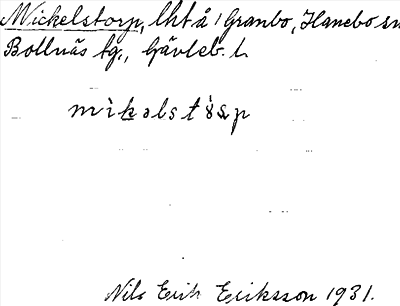 Mickelstorp, lht å Granbo, Hanebo sn
Bollnäs tg., Gävleb. l.
Nils Erik Eriksson 1931.